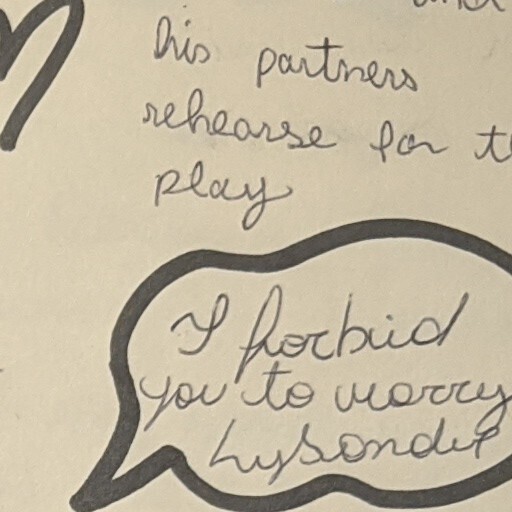 his partners
rehearse for
play
I forbid
you to marry
Lysander